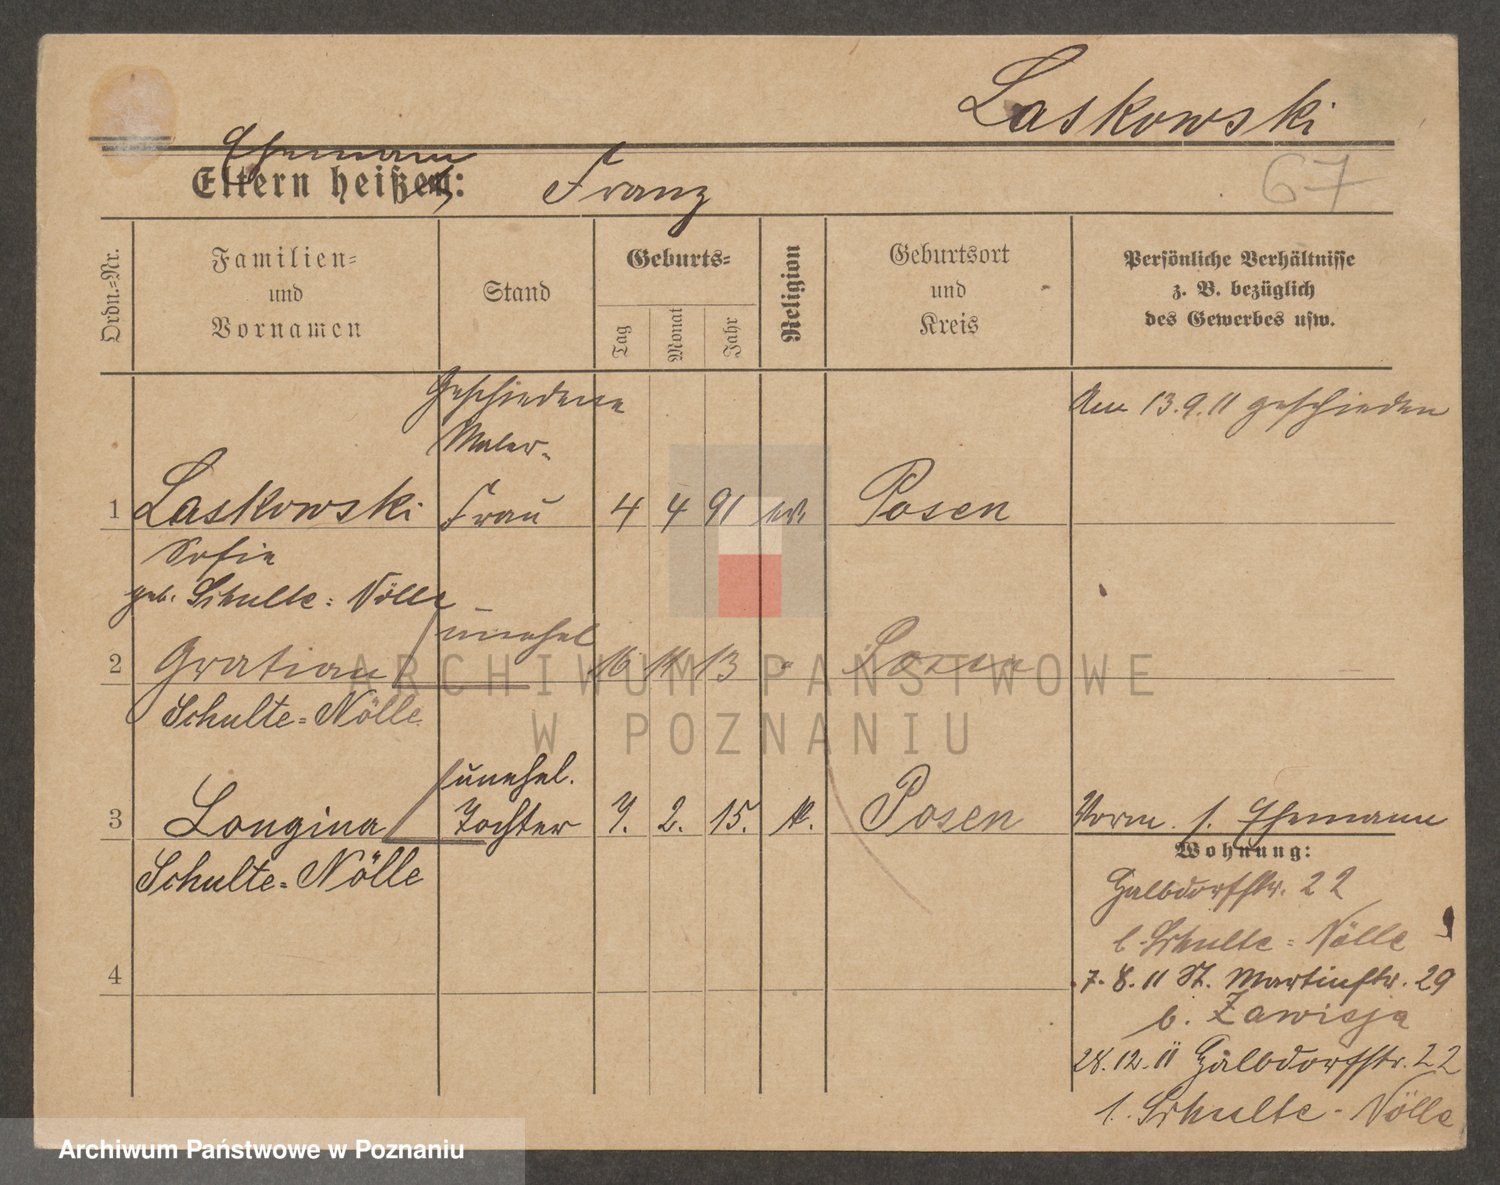 Laskowski
Ehemann
Eltern heißen: Franz
67
Ordn.-Nr.
Familien-
und
Vornamen
Stand
Geburts-
Tag
Monat
Jahr
Religion
Geburtsort
und
Kreis
Persönliche Verhältnisse
z. B. bezüglich
des Gewerbes usw.
Geschiedene
Am 13.9.11 geschieden
Maler-
1 Laskowski Frau 4 4 91 Posen
Sofie
geb. Schulte-Nölle
unehel
2 Gratian 16 11 13 " Posen
Schulte-Nölle
unehel.
3 Longina Tochter 7. 2. 15. k. Posen Vorm. s. Ehemann
Schulte-Nölle
Wohnung:
22
b. Schulte-Nölle
4
7.8.11 St. Martinstr. 29
b. Zawisja
28.12.11 22
Schulte-Nölle
ARCHIWUM PAŃSTWOWE
W POZNANIU
Archiwum Państwowe w Poznaniu